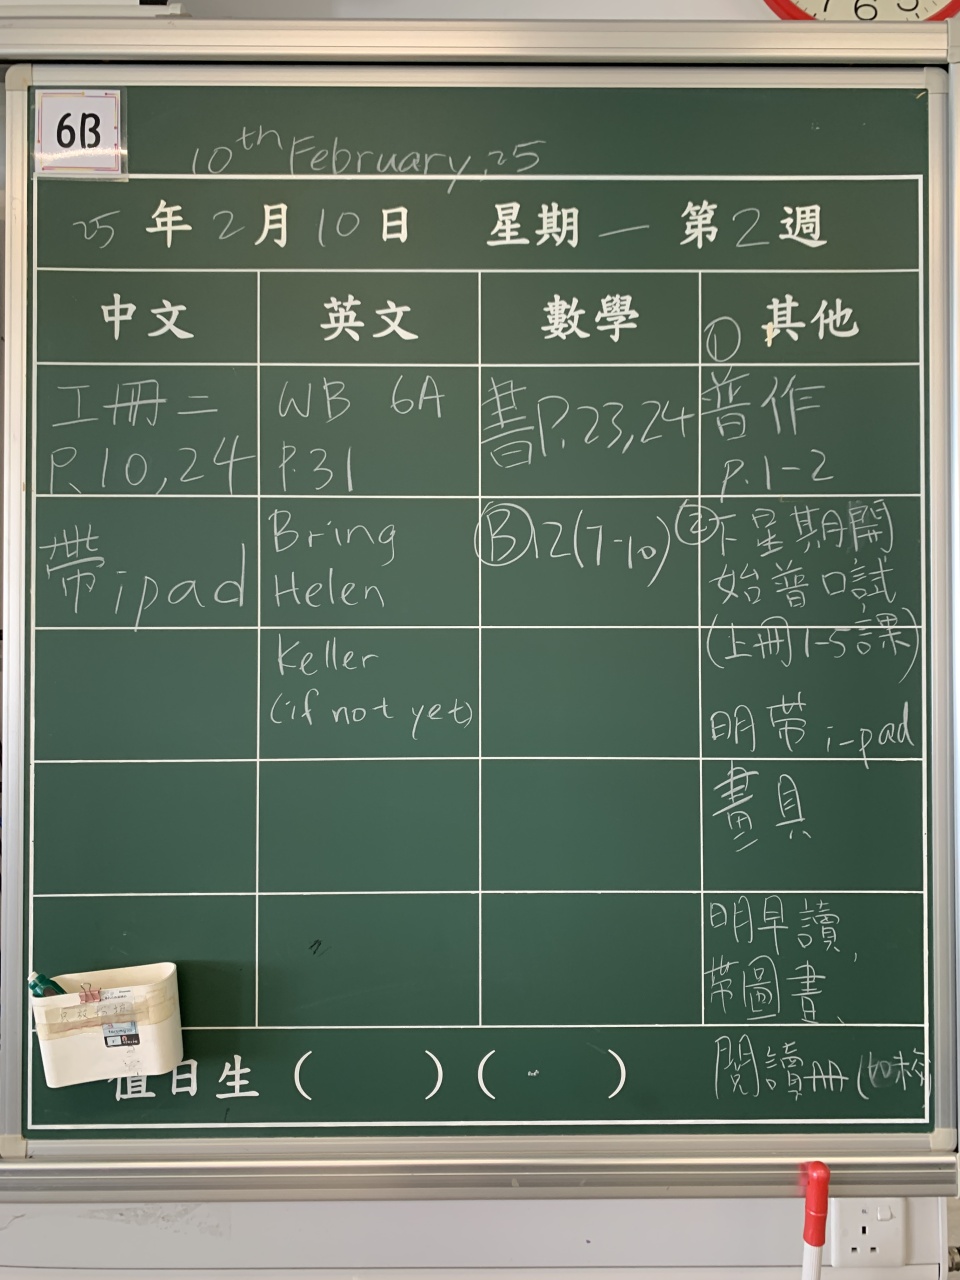 6B
10th February, 25
25年2月10日 星期一 第2週
中文 英文 數學 ①其他
工冊二
P.10,24
帶ipad
WB 6A
P.31
Bring
Helen
Keller
(if not yet)
書P.23,24
Ⓑ12(7-10)
普作
P.1-2
②下星期開
始普口試
(上冊1-5課)
明帶i-pad
畫具
明早讀,
帶圖書、
閱讀AA(如
值日生( )( )